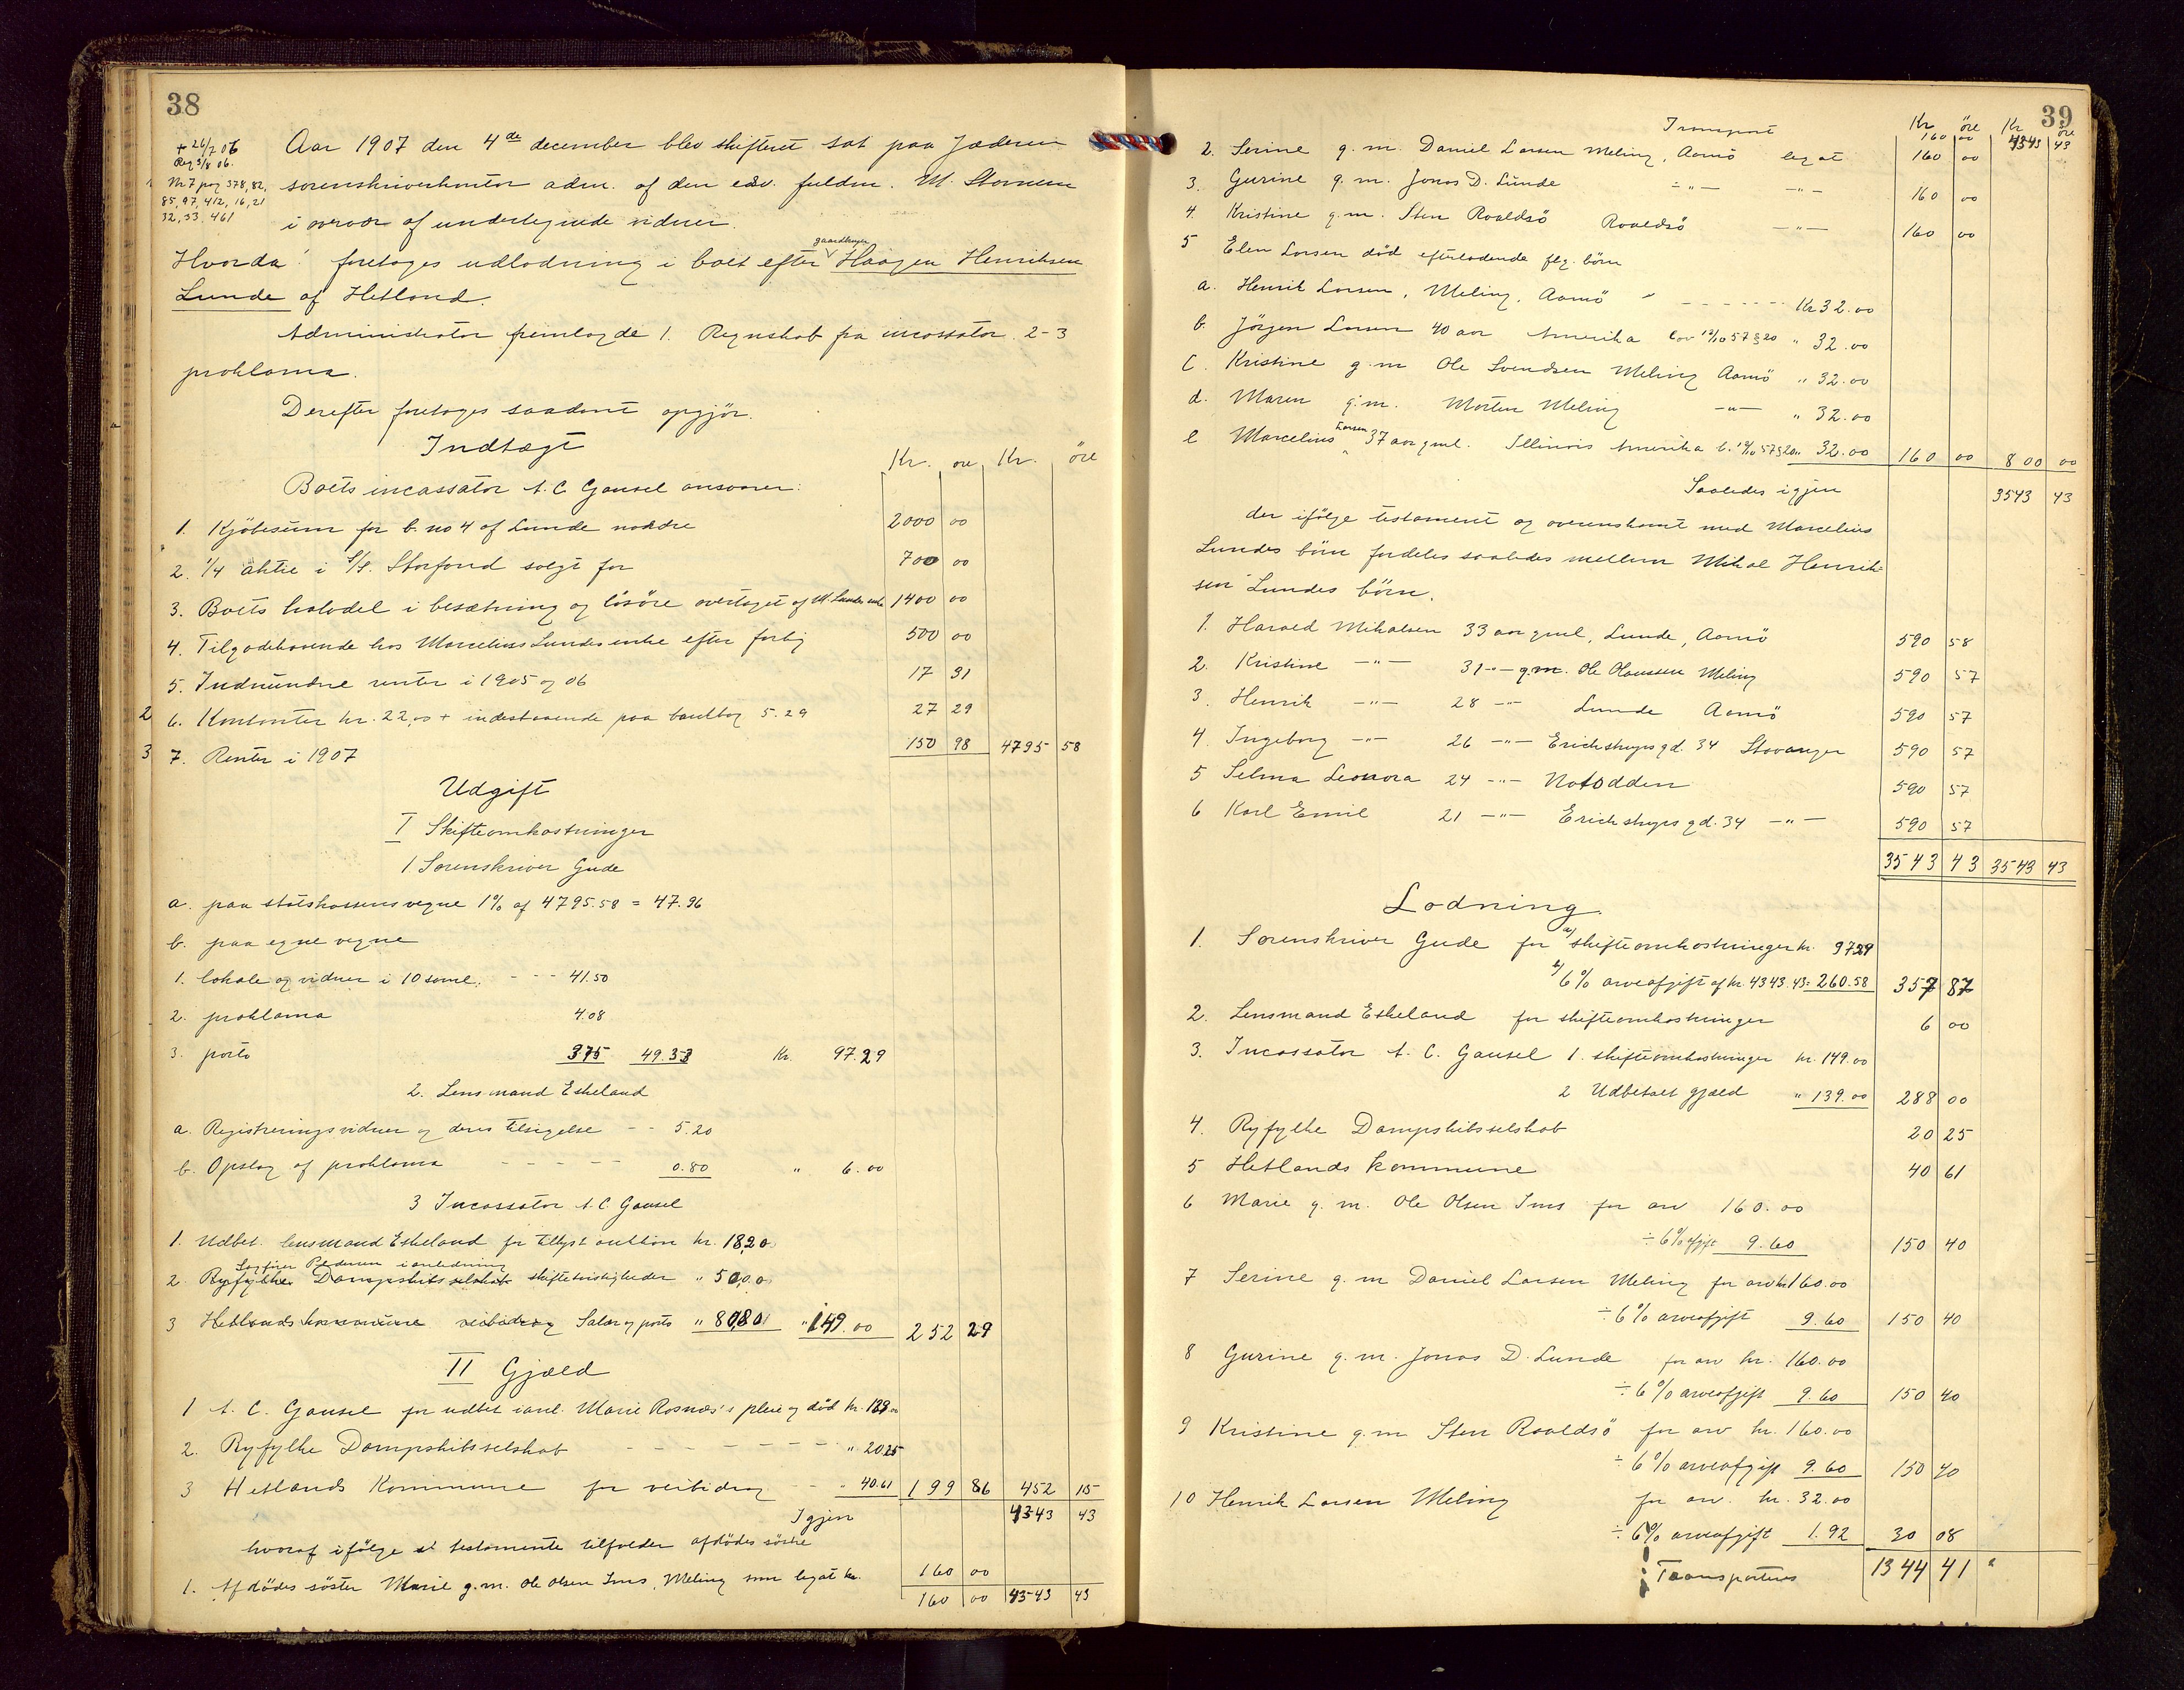 38
+ 26/7 06
Reg 3/8 06.
M 7 pag 378, 82,
85, 97, 412, 16, 21
32, 33, 461
Aar 1907 den 4de december blev skifteret sat paa Jæderen
sorenskriverkontor adm. af den edsv. fuldm. M. Stornem
i overvær af undertegnede vidner.
Hvorda: foretoges udlodning i boet efter gaardbruger Haagen Henriksen
Lunde af Hetland.
Administrator fremlagde 1. Regnskab fra incassator. 2-3
proklama.
Derefter foretoges saadant opgjør.
Indtægt
Kr. øre Kr. öre
Boets incassator A. C. Gausel ansvarer:
1. Kjöbesum for b. no 4 af Lunde nordre 2000 00
2. 1/4 aktie i S/S. Storfond solgt for 700 00
3. Boets halvdel i besætning og lösöre overtaget af M. Lundes enke 1400 00
4. Tilgodehavende hos Marcelius Lundes enke efter forlig 500 00
5. Indvundne renter i 1905 og 06 17 31
2 6. Kontanter kr. 22,00 + indestaaende paa bankbog 5.29 27 29
3 7. Renter i 1907 150 98 4795 58
Udgift
I Skifteomkostninger
1. Sorenskriver Gude
a. paa statskassens vegne 1% af 4795.58 = 47.96
b. paa egne vegne
1. lokale og vidner i 10 saml. - - - 41.50
2. proklama 4.08
3. porto 375 49.33 Kr. 97.29
2. Lensmand Eskeland
a. Registreringsvidner og deres tilsigelse - - 5.20
b. Opslag af proklama - - - - - 0.80 " 6.00
3 Incassator A. C. Gausel
1. Udbet. lensmand Eskeland for tillyst auktion kr. 18,20
Pedersen i anledning
2. Ryfylke Dampskibsselskab skiftestridigheder " 50,00
3 Hetlands kommune veibidrag Salær og porto " 80,80 " 149.00 252 29
II Gjæld
1 A. C. Gausel for udbet i anl. Marie Rosnæs's pleie og död kr. 139.00
2. Ryfylke Dampskibsselskab - - - - - - - " 20.25
3 Hetlands Kommune for veibidrag - - " 40.61 199 86 452 15
Igjen 4343 43
hvoraf ifölge testamente tilfalder afdödes söstre
1. Afdödes söster Marie g.m. Ole Olsen Ims, Meling som legat kr. 160 00
160 00 4343 43
39
Transport Kr öre Kr öre
160 00 4343 43
2. Serine g. m. Daniel Larsen Meling, Aamö legat 160 00
3. Gurine g. m. Jonas D. Lunde - " - - " - 160 00
4. Kristine g. m. Sten Roaldsö Roaldsö - " - 160 00
5 Elen Larsen död efterladende flg. börn
a. Henrik Larsen, Meling, Aamö " - - - - - - Kr 32.00
b. Jörgen Larsen 40 aar Amerika Lov 12/10 57 § 20 " 32.00
c. Kristine g. m Ole Svendsen Meling Aamö " 32.00
d. Maren g. m. Morten Meling - " - " 32.00
e Marcelius Larsen 37 aar gml. Illinois Amerika l. 12/10 57 § 20 " 32.00 160 00 800 00
Saaledes igjen 3543 43
der ifölge testament og overenskomst med Marcelius
Lundes börn fordeles saaledes mellem Mikal Henrik=
sen Lundes börn.
1. Harald Mikalsen 33 aar gml, Lunde, Aamö 590 58
2. Kristine - " - 31 - " - g.m. Ole Olaussen Meling 590 57
3. Henrik - " - 28 - " - Lunde Aamö 590 57
4. Ingeborg - " - 26 - " - Erichstrups gd. 34 Stavanger 590 57
5 Selma Leonora 24 - " - Notodden 590 57
6 Karl Emil 21 - " - Erichstrups gd. 34 - " - 590 57
3543 43 3543 43
Lodning.
1. Sorenskriver Gude for a/ skifteomkostninger kr. 97.29
b/ 6% arveafgift af kr. 4343.43 = 260.58 357 87
2. Lensmand Eskeland for skifteomkostninger 6 00
3. Incassator A. C. Gausel 1. skifteomkostninger kr. 149.00
2 Udbetalt gjæld " 139.00 288 00
4. Ryfylke Dampskibsselskab 20 25
5 Hetlands kommune 40 61
6 Marie g. m. Ole Olsen Ims for arv 160.00
÷ 6% afgift 9.60 150 40
7 Serine g. m Daniel Larsen Meling for arv kr 160.00
÷ 6% arveafgift 9.60 150 40
8 Gurine g. m. Jonas D. Lunde for arv kr. 160.00
÷ 6% arveafgift 9.60 150 40
9 Kristine g. m Sten Roaldsö for arv kr. 160.00
÷ 6% arveafgift 9.60 150 40
10 Henrik Larsen Meling for arv. kr. 32.00
÷ 6% arveafgift 1.92 30 08
Transporteres 1344 41